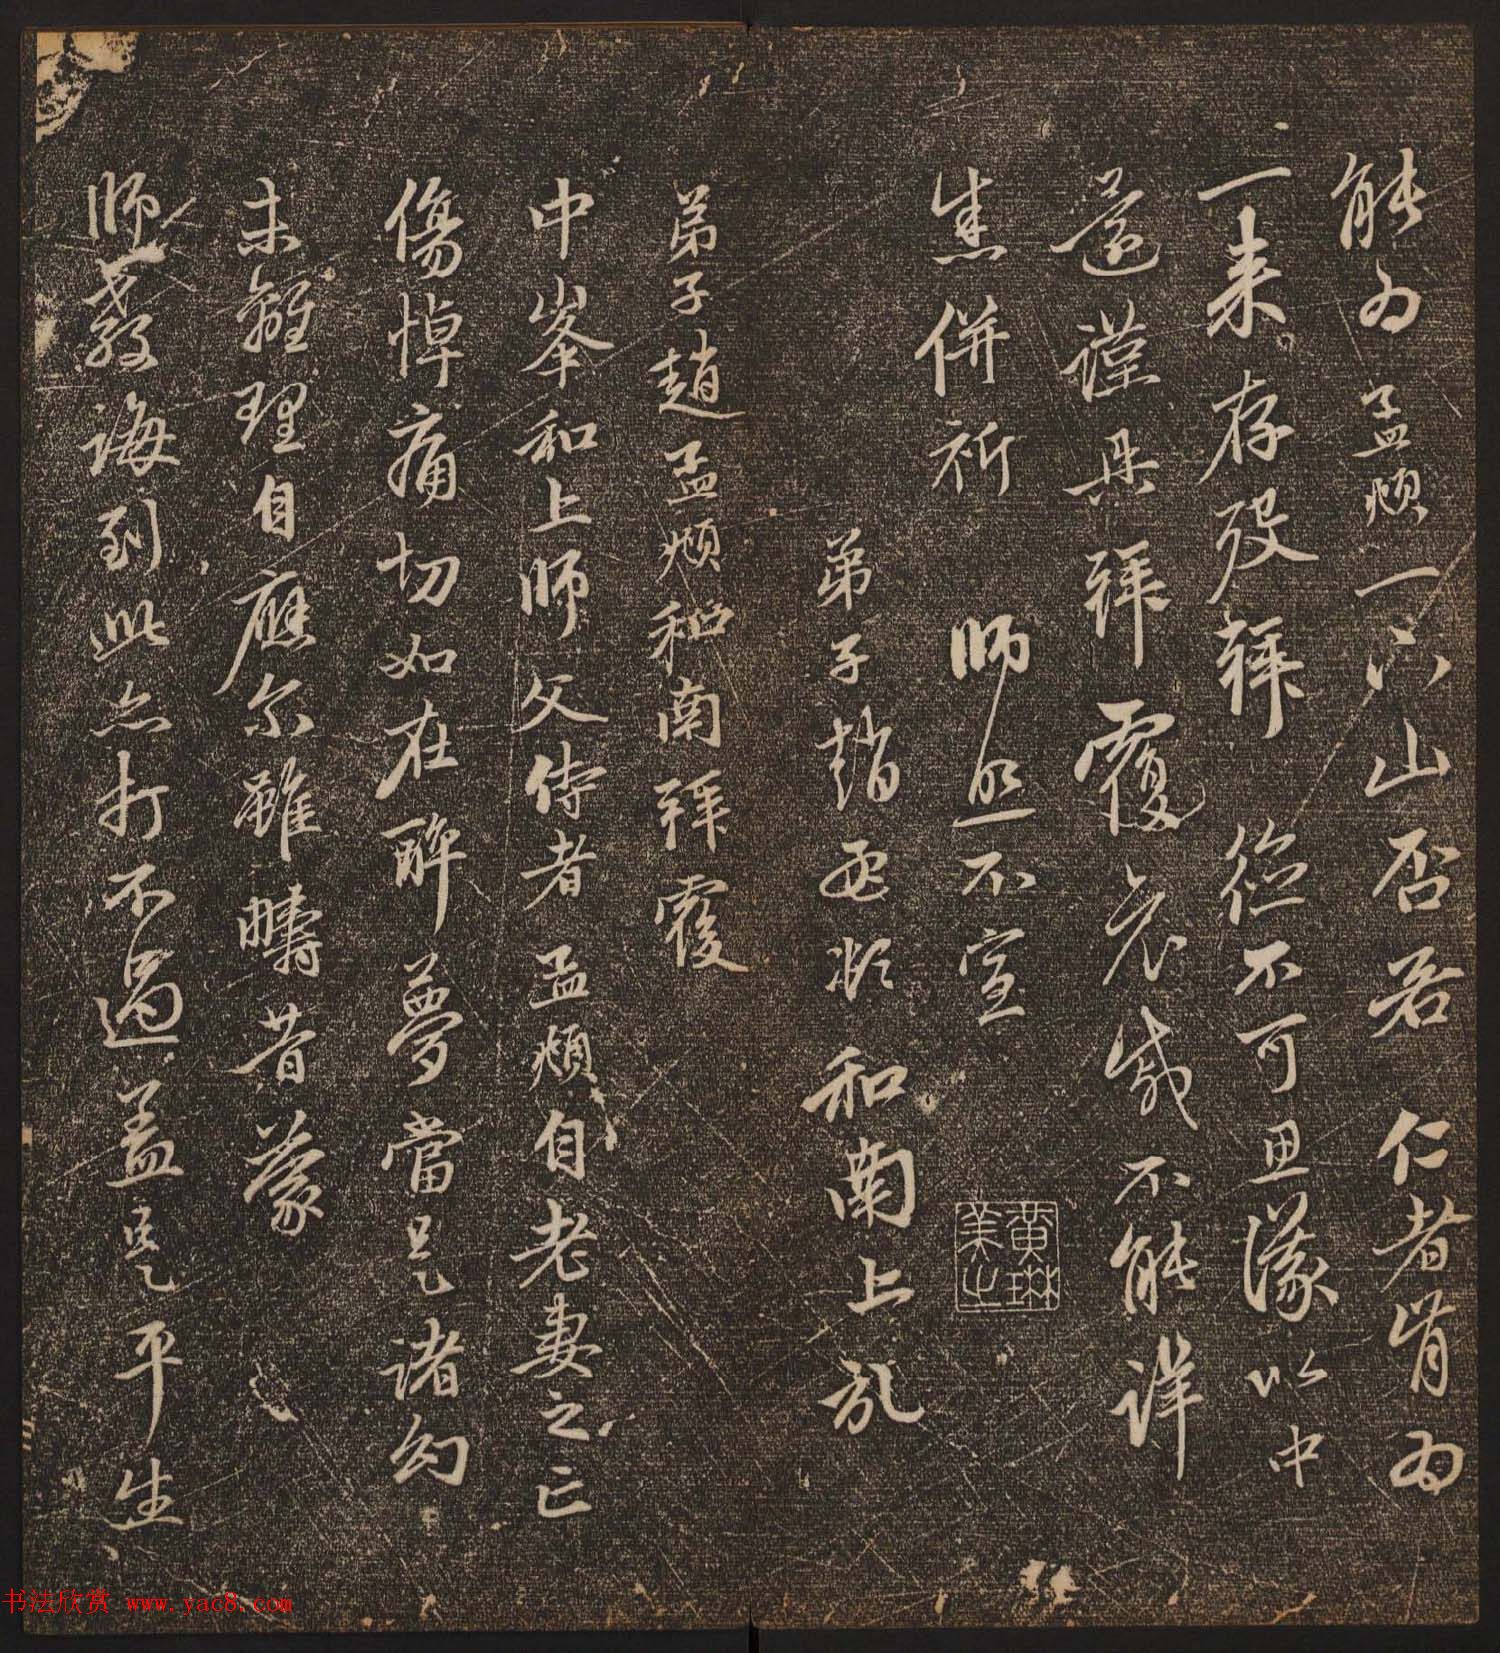 能為孟頫一下山否若仁者肯為
一來存歿拜德不可思議以中
還謹具拜覆哀感不能詳
焦併祈師照不宣
弟子趙孟頫和南上
黃琳美之
弟子趙孟頫和南拜覆
中峯和上師父侍者孟頫自老妻之亡
傷悼痛切如在醉夢當是諸幻
未離理自應尔雖疇昔蒙
師教誨到此亦打不過盖是平生
书法欣赏 www.yac8.com